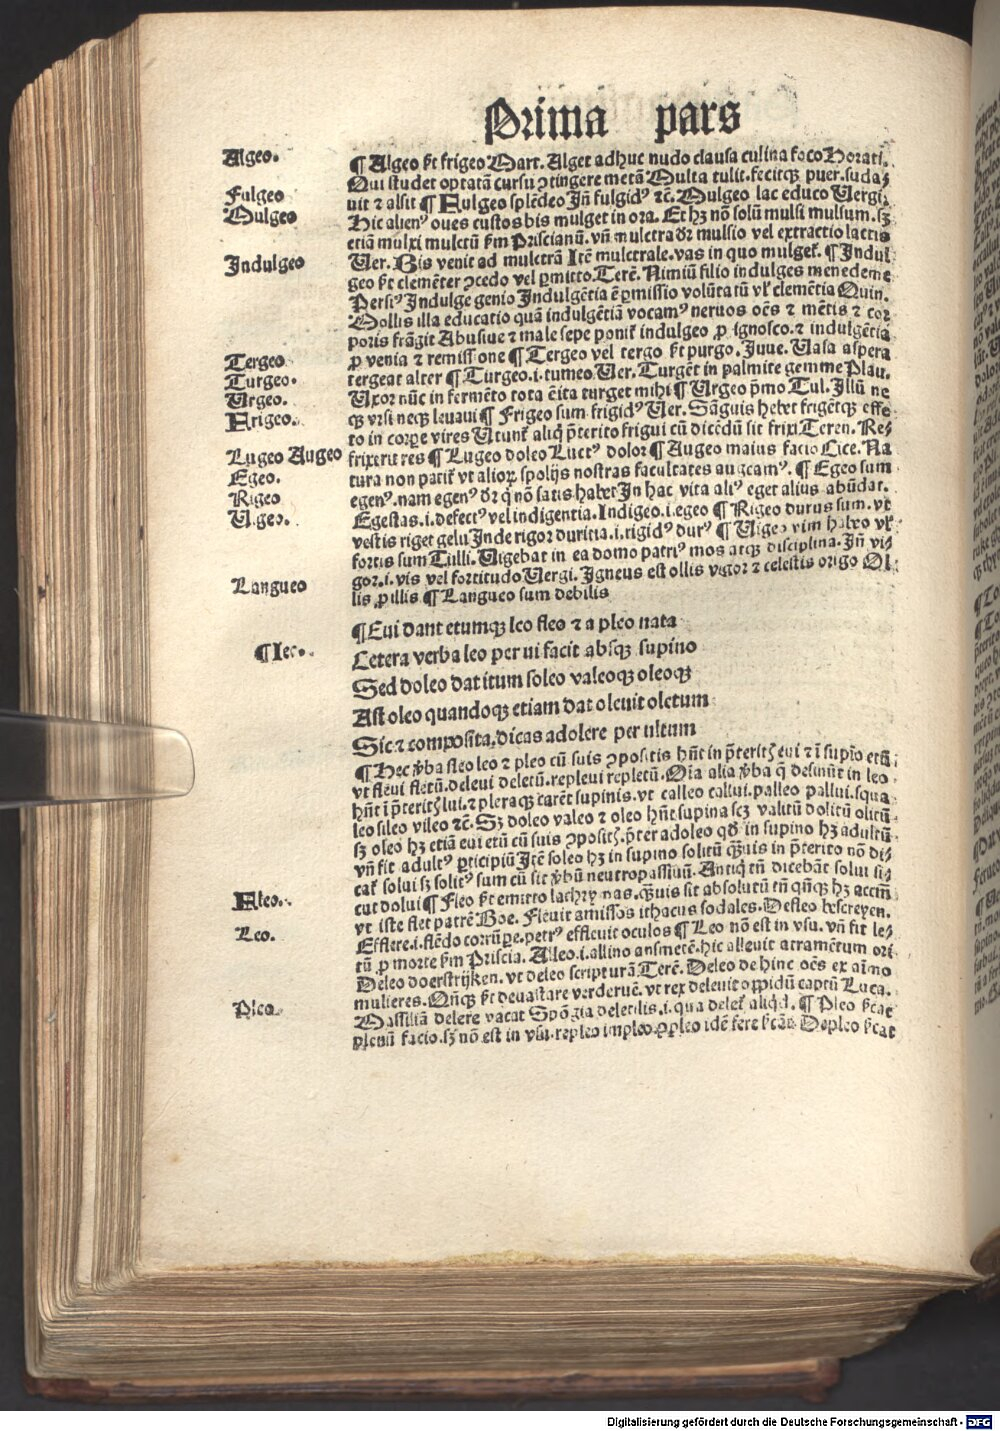 Prima pars
Algeo.
¶ Algeo ẜt frigeo Mart. Alget adhuc nudo clausa culina foco Horati.
Qui studet optatā cursu ꝯtingere metā Multa tulit. fecitqꝫ puer. suda⸗
Fulgeo
uit ⁊ alsit ¶ Fulgeo splēdeo Jn̄ fulgidꝰ ⁊c̄. Mulgeo lac educo Uergi.
Mulgeo
Hic alienꝰ oues custos bis mulget in ora. Et hꝫ nō solū mulsi mulsum. sꝫ
etiā mulxi mulctū ẜm Priscianū. vn̄ mulctra dr̄ mulsio vel extractio lactis
Uer. Bis venit ad mulctrā Itē mulctrale. vas in quo mulget̄. ¶ Indul
Indulgeo
geo ẜt clemēter ꝯcedo vel ꝑmitto Terē. Nimiū filio indulges menedeme
Persiꝰ Indulge genio Indulgētia ē ꝑmissio volūtatū vl̓ clemētia Quin.
Mollis illa educatio quā indulgētiā vocamꝰ neruos oēs ⁊ mētis ⁊ cor
poris frāgit Abusiue ⁊ male sepe ponit̄ indulgeo ꝓ ignosco. ⁊ indulgētia
Tergeo
ꝓ venia ⁊ remissione ¶ Tergeo vel tergo ẜt purgo. Juue. Uasa aspera
Turgeo.
tergeat alter ¶ Turgeo .i. tumeo Uer. Turgēt in palmite gemme Plau.
Urgeo.
Uxor nūc in fermēto tota ē ita turget mihi ¶ Urgeo p̄mo Tul. Illū ne
Frigeo.
qꝫ vrsi neqꝫ leuaui ¶ Frigeo sum frigidꝰ Uer. Sāguis hebet frigētqꝫ effe
to in corꝑe vires Utunt̄ aliq̄ p̄terito frigui cū dicēdū sit frixi Teren. Re⸗
Lugeo Augeo
frixerit res ¶ Lugeo doleo Luctꝰ dolor ¶ Augeo maius facio Cice. Na
Egeo.
tura non patit̄ vt alioꝝ spolijs nostras facultates augeamꝰ. ¶ Egeo sum
Rigeo
egenꝰ. nam egenꝰ dr̄ q̄ nō satis habet Jn hac vita aliꝰ eget alius abūdat.
Uigeo.
Egestas .i. defectꝰ vel indigentia. Indigeo .i. egeo ¶ Rigeo durus sum. vt
vestis riget gelu Inde rigor duritia .i. rigidꝰ durꝰ ¶ Uigeo vim habeo vl̓
fortis sum Tulli. Uigebat in ea domo patriꝰ mos atqꝫ disciplina. Jn̄ vi⸗
gor .i. vis vel fortitudo Uergi. Igneus est ollis vigor ⁊ celestis origo Ol⸗
Langueo
lis ꝓ illis ¶ Langueo sum debilis
¶ Eui dant etumqꝫ leo fleo ⁊ a pleo nata
¶ leo.
Cetera verba leo per ui facit absqꝫ supino
Sed doleo dat itum soleo valeoqꝫ oleoqꝫ
Ast oleo quandoqꝫ etiam dat oleuit oletum
Sic ⁊ composita. dicas adolere per ultum
¶ Hec v̓ba fleo leo ⁊ pleo cū suis ꝯpositis hn̄t in p̄teritꝭ eui ⁊ ī supīo etū
vt fleui fletū. deleui deletū. repleui repletū. Oīa alia v̓ba q̄ desinūt in leo
hn̄t ī p̄teritꝭ lui. ⁊ pleraqꝫ carēt supinis. vt calleo callui. palleo pallui. squa
leo sileo vileo ⁊c̄. Sꝫ doleo valeo ⁊ oleo hn̄t supina scꝫ valitū dolitū olitū.
sꝫ oleo hꝫ etiā eui etū cū suis ꝯpositꝭ. p̄ter adoleo qd̓ in supino hꝫ adultū.
vn̄ fit adultꝰ ꝑticipiū Itē soleo hꝫ in supino solitū qꝫuis in p̄terito nō di⸗
cat̄ solui sꝫ solitꝰ sum cū sit v̓bū neutropassiuū. Antiq̄ tn̄ dicebāt solui si⸗
Fleo.
cut dolui ¶ Fleo ẜt emitto lachrymas. qꝫuis sit absolutū tn̄ qn̄qꝫ hꝫ acctm̄
vt iste flet patrē Boe. Fleuit amissos ithacus sodales. Defleo bescreyen.
Leo.
Efflere .i. flēdo corrūꝑe. petrꝰ effleuit oculos ¶ Leo nō est in vsu. vn̄ fit le⸗
tū ꝓ morte ẜm Priscia. Alleo .i. allino ansmetē. hic alleuit atramētum ori
Deleo doerstrijken. vt deleo scripturā Terē. Deleo dehinc oēs ex aīmo
mulieres. Qn̄qꝫ ẜt deuastare verderuē. vt rex deleuit oppidū captū Luca.
Pleo.
Massiliā delere vacat Spōgia deletilis .i. qua delet̄ aliqd̓. ¶ Pleo ẜcat
plenū facio. sꝫ nō est in vsu. repleo impleo. ꝓpleo idē fere ẜcāt. Depleo ẜcat
Digitalisierung gefördert durch die Deutsche Forschungsgemeinschaft - DFG